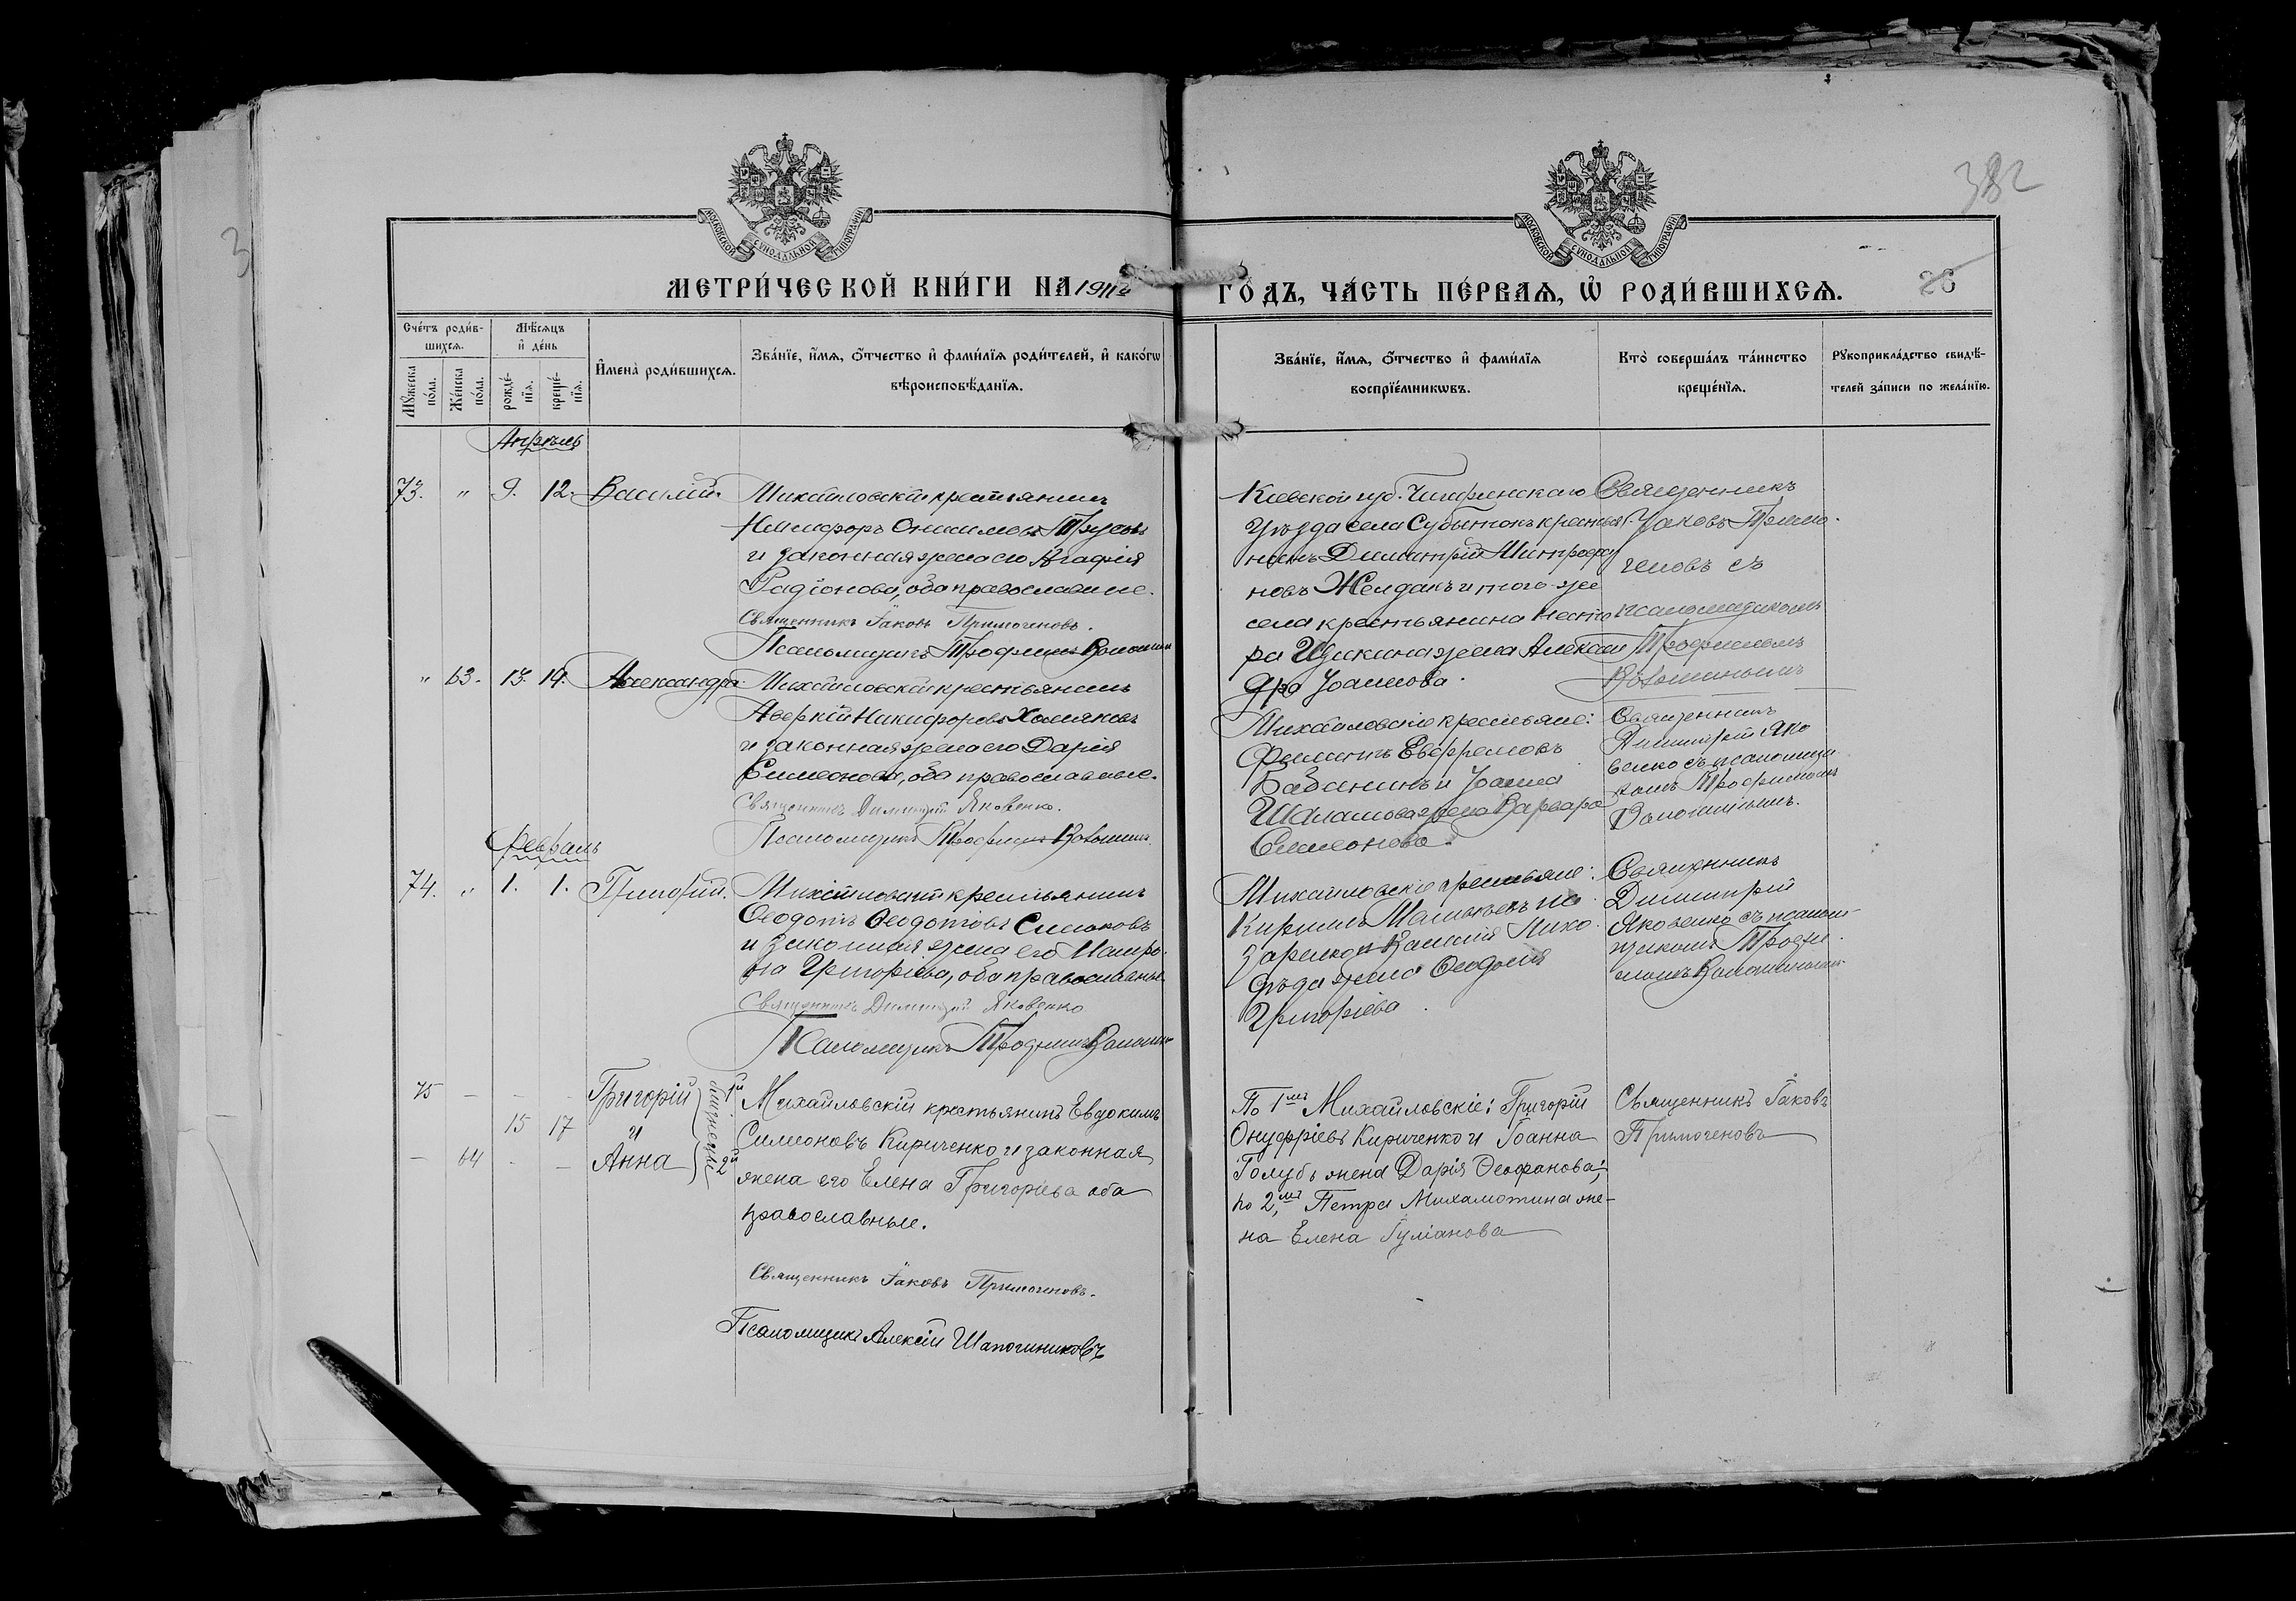 МОСКОВСКОЙ СѴНОДАЛЬНОЙ ТИПОГРАФІИ
МОСКОВСКОЙ СѴНОДАЛЬНОЙ ТИПОГРАФІИ
382
3
МЕТРИ́ЧЕСКОЙ КНИ́ГИ НА 1911
ГО́ДЪ, ЧА́СТЬ ПЕ́РВАѦ, Ѡ҆ РОДИ́ВШИХСѦ.
26
Сче́тъ роди́в-
шихсѧ.
Мѣ́сѧцъ
и҆ де́нь
Мꙋ́жеска
по́ла.
Же́нска
по́ла.
рожде́-
нїѧ.
креще́-
нїѧ.
И҆мена̀ роди́вшихсѧ.
Зва́нїе, и҆́мѧ, ѻ҆́тчество и҆ фами́лїѧ роди́телей, и҆ како́гѡ
вѣроисповѣ́данїѧ.
Зва́нїе, и҆́мѧ, ѻ҆́тчество и҆ фами́лїѧ
воспрїе́мникѡвъ.
Кто̀ соверша́лъ та́инство
креще́нїѧ.
Рꙋкоприкла́дство свидѣ́-
телей за́писи по жела́нїю.
Апрѣль
73. " 9. 12. Василій.
Михайловскій крестьянинъ
Никифоръ Онисимовъ Трусовъ
и законная жена его Агафія
Радіонова, оба православные.
Священникъ Іаковъ Примогеновъ.
Псаломщикъ Трофимъ Волошинъ
Кіевской губ. Чигиринскаго
Уѣзда села Субботовъ крестья-
нинъ Димитрій Митрофа
новъ Желдакъ и того-же
села крестьянина Несто
ра жена Алексан
дра Іоаннова.
Священникъ
Іаковъ Примо-
геновъ съ
псаломщикомъ
Трофимомъ
Волошинымъ
" 63. 13. 14. Александра
Михайловскій крестьянинъ
Аверкій Никифоровъ Хомяковъ
и законная жена его Дарія
Симеонова, оба православные.
Священникъ Димитрій Яковенко.
Псаломщикъ Трофимъ Волошинъ.
Михайловскіе крестьяне:
Филиппъ Евфремовъ
Бабанинъ и Іоанна
Шалашова жена Варвара
Симеонова.
Священникъ
Димитрій Яко
венко съ псаломщи-
комъ Трофимомъ
Волошинымъ.
Февраль
74. " 1. 1. Трифонъ.
Михайловскій крестьянинъ
Ѳеодотъ Ѳеодотовъ Симоновъ
и законная жена его Матро-
на Григорьева, оба православные.
Священникъ Димитрій Яковенко
Псаломщикъ Трофимъ Волошинъ
Михайловскіе крестьяне:
Кириллъ
и Василія
дѣда жена Ѳеодосія
Григорьева
Священникъ
Димитрій
Яковенко съ псалом-
щикомъ Трофи-
момъ Волошинымъ
75 - - - Григорій 1й
15 17 и близнецы
- 64 - - Анна 2й
Михайловскій крестьянинъ Евдокимъ
Симеоновъ Кириченко и законная
жена его Елена Григорьева оба
православные.
Священникъ Іаковъ Примогеновъ.
Псаломщикъ Алексѣй Шапочниковъ
По 1мъ Михайловскіе: Григорій
Онуфріевъ Кириченко и Іоанна
Голубъ жена Дарія Ѳеофанова;
по 2мъ Петра Михамотина же-
на Елена Гуліанова
Священникъ Іаковъ
Примогеновъ